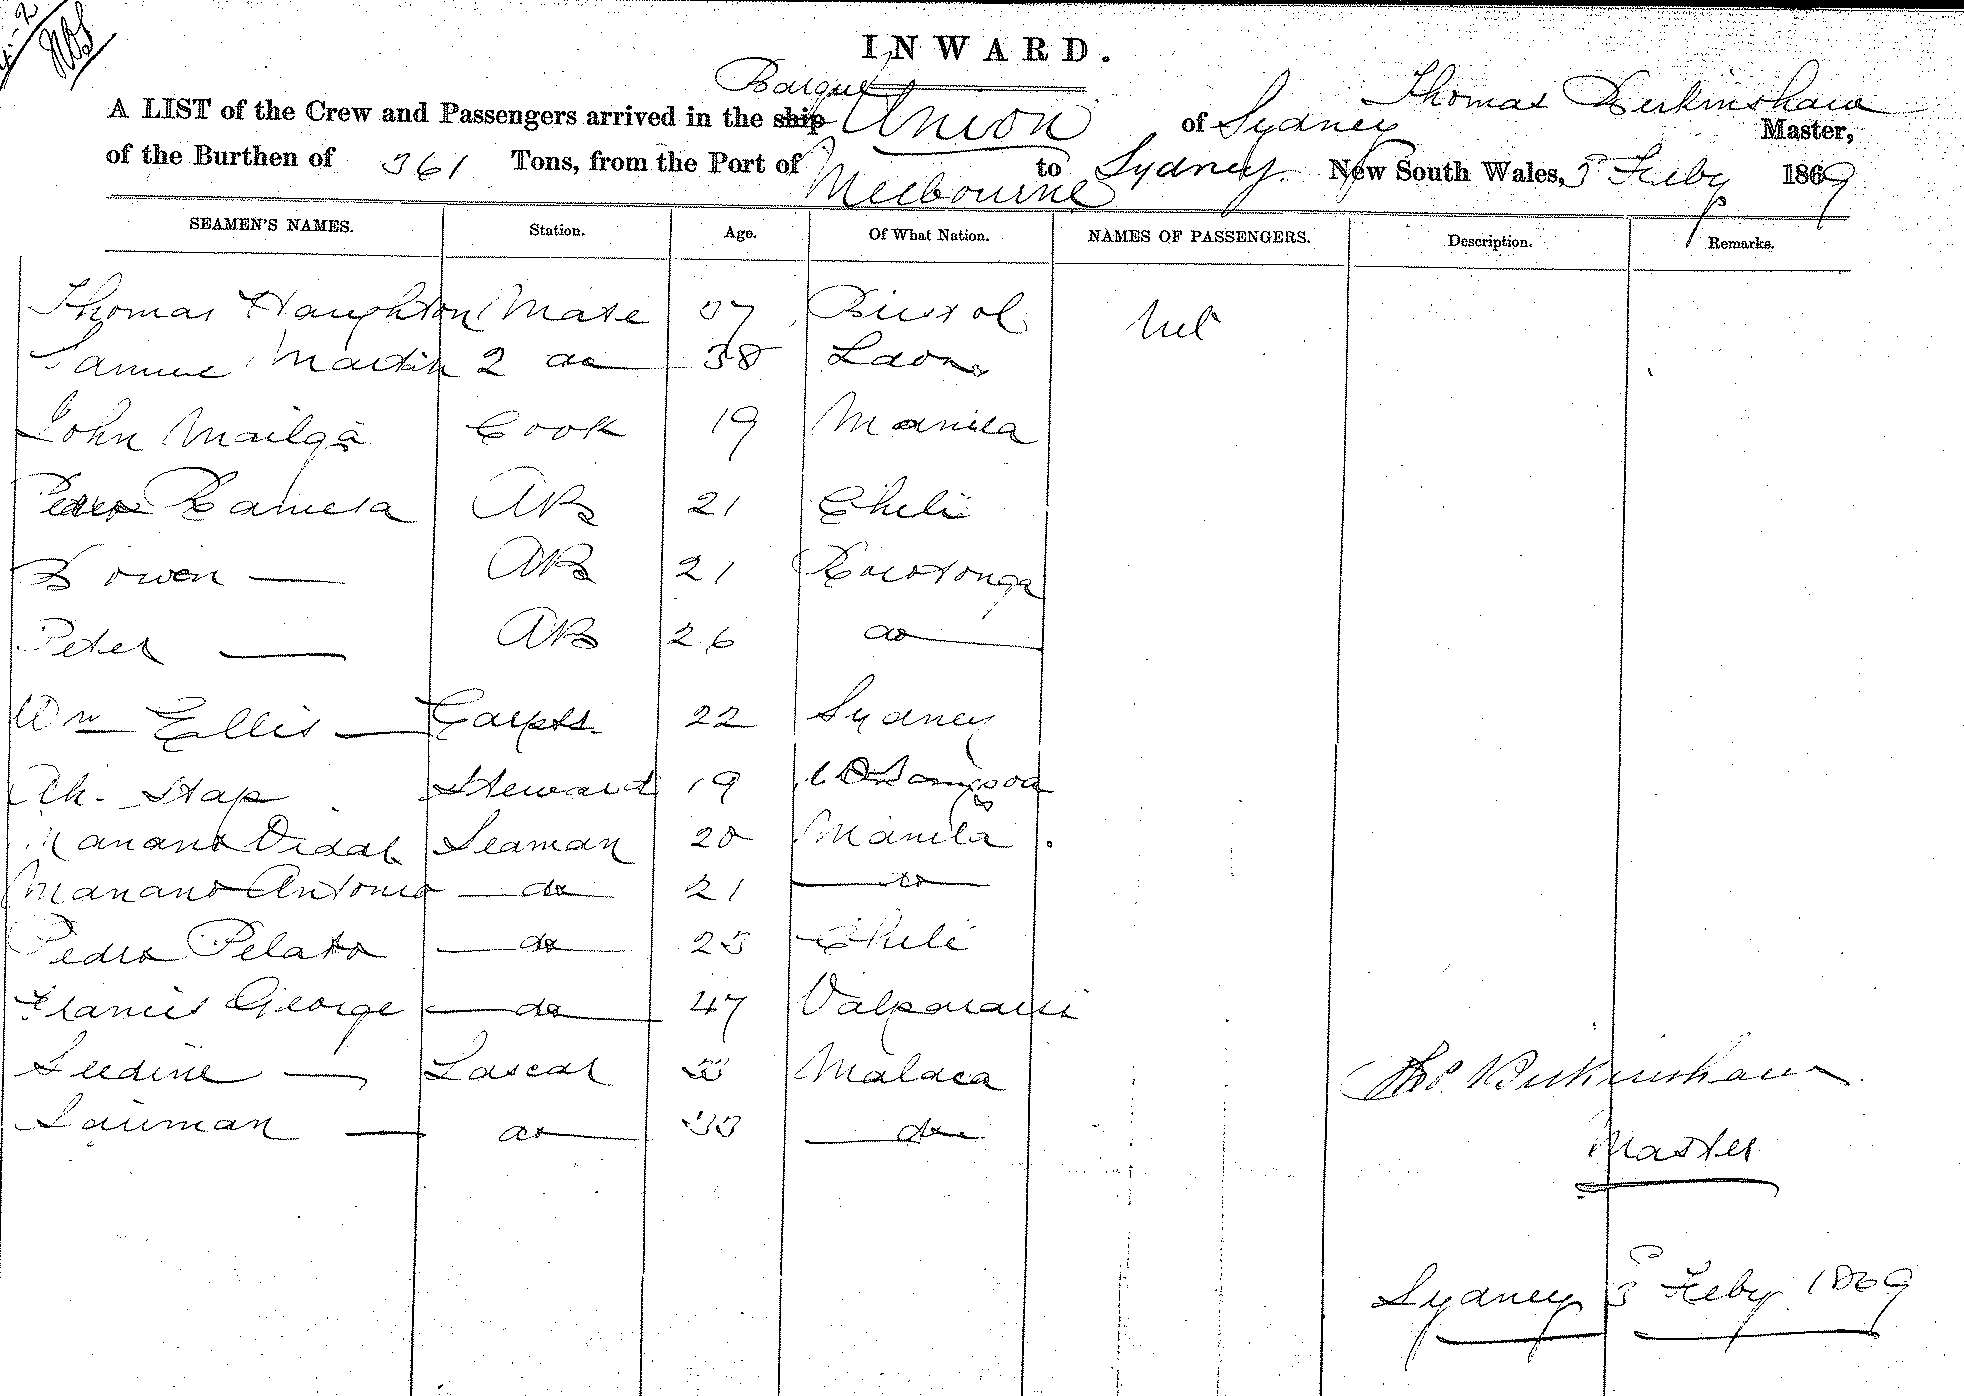 INWARD.
Barque
A LIST of the Crew and Passengers arrived in the ship Union of Sydney Thomas Birkinshaw Master,
of the Burthen of 361 Tons, from the Port of Melbourne to Sydney New South Wales, 3 Feby 1869
SEAMEN'S NAMES. Station. Age. Of What Nation. NAMES OF PASSENGERS. Description. Remarks.
Thomas Haughton Mate 37 Bristol Nil
Samuel Martin 2 do 38
John Mailga Cook 19 Manila
Pedro AB 21 Chili
Bowen — AB 21 Rarotonga
Peter — AB 26 do
Wm Ellis — Carptr 22 Sydney
Ah. Hap Steward 19
Mariano Vidal Seaman 20 Manila
Mariano Antonio do 21 do
Pedro Pelato do 25 Chili
Francis George do 47 Valparaiso
— Lascar 33 Malaca
— do 33 do
Thos Birkinshaw
Master
Sydney 3 Feby 1869